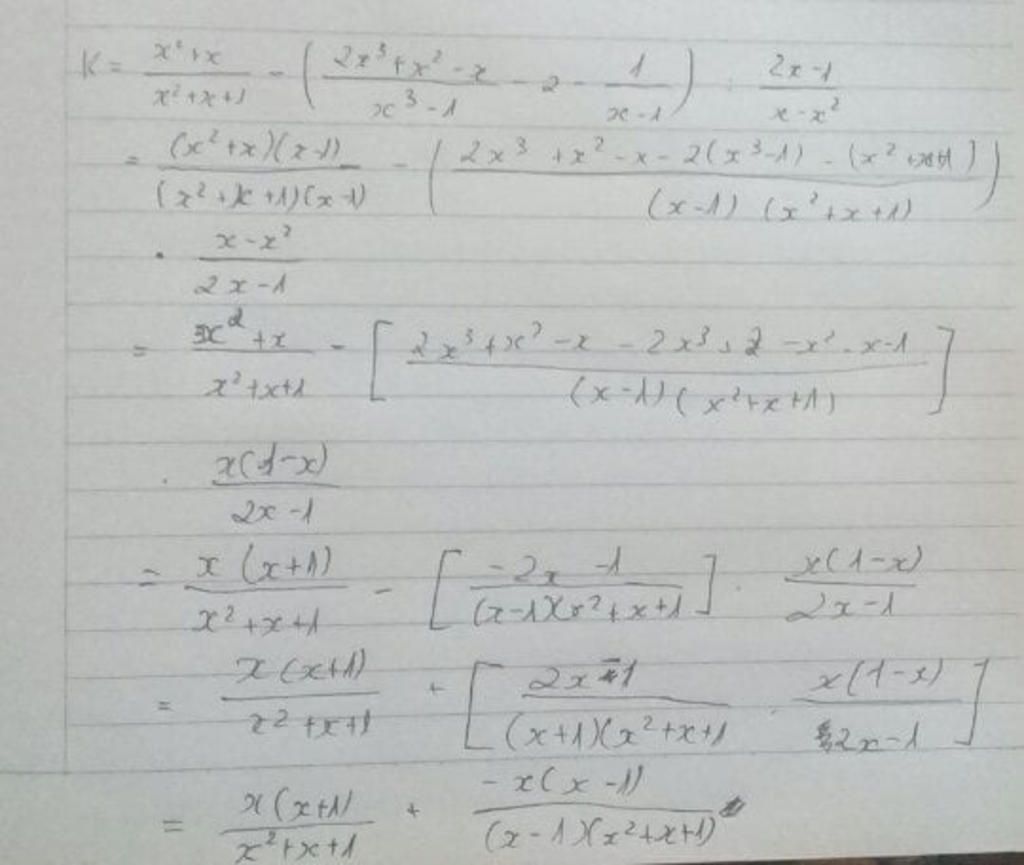 K = \frac{x^2+x}{x^2+x+1} - \left( \frac{2x^3+x^2-x}{x^3-1} - 2 - \frac{1}{x-1} \right) : \frac{2x-1}{x-x^2}
= \frac{(x^2+x)(x-1)}{(x^2+x+1)(x-1)} - \left( \frac{2x^3+x^2-x-2(x^3-1)-(x^2+x+1)}{(x-1)(x^2+x+1)} \right)
\cdot \frac{x-x^2}{2x-1}
= \frac{x^2+x}{x^2+x+1} - \left[ \frac{2x^3+x^2-x-2x^3+2-x^2-x-1}{(x-1)(x^2+x+1)} \right]
\cdot \frac{x(1-x)}{2x-1}
= \frac{x(x+1)}{x^2+x+1} - \left[ \frac{-2x-1}{(x-1)(x^2+x+1} \right] \cdot \frac{x(1-x)}{2x-1}
= \frac{x(x+1)}{x^2+x+1} + \left[ \frac{2x-1}{(x+1)(x^2+x+1} \cdot \frac{x(1-x)}{2x-1} \right]
= \frac{x(x+1)}{x^2+x+1} + \frac{-x(x-1)}{(x-1)(x^2+x+1)}